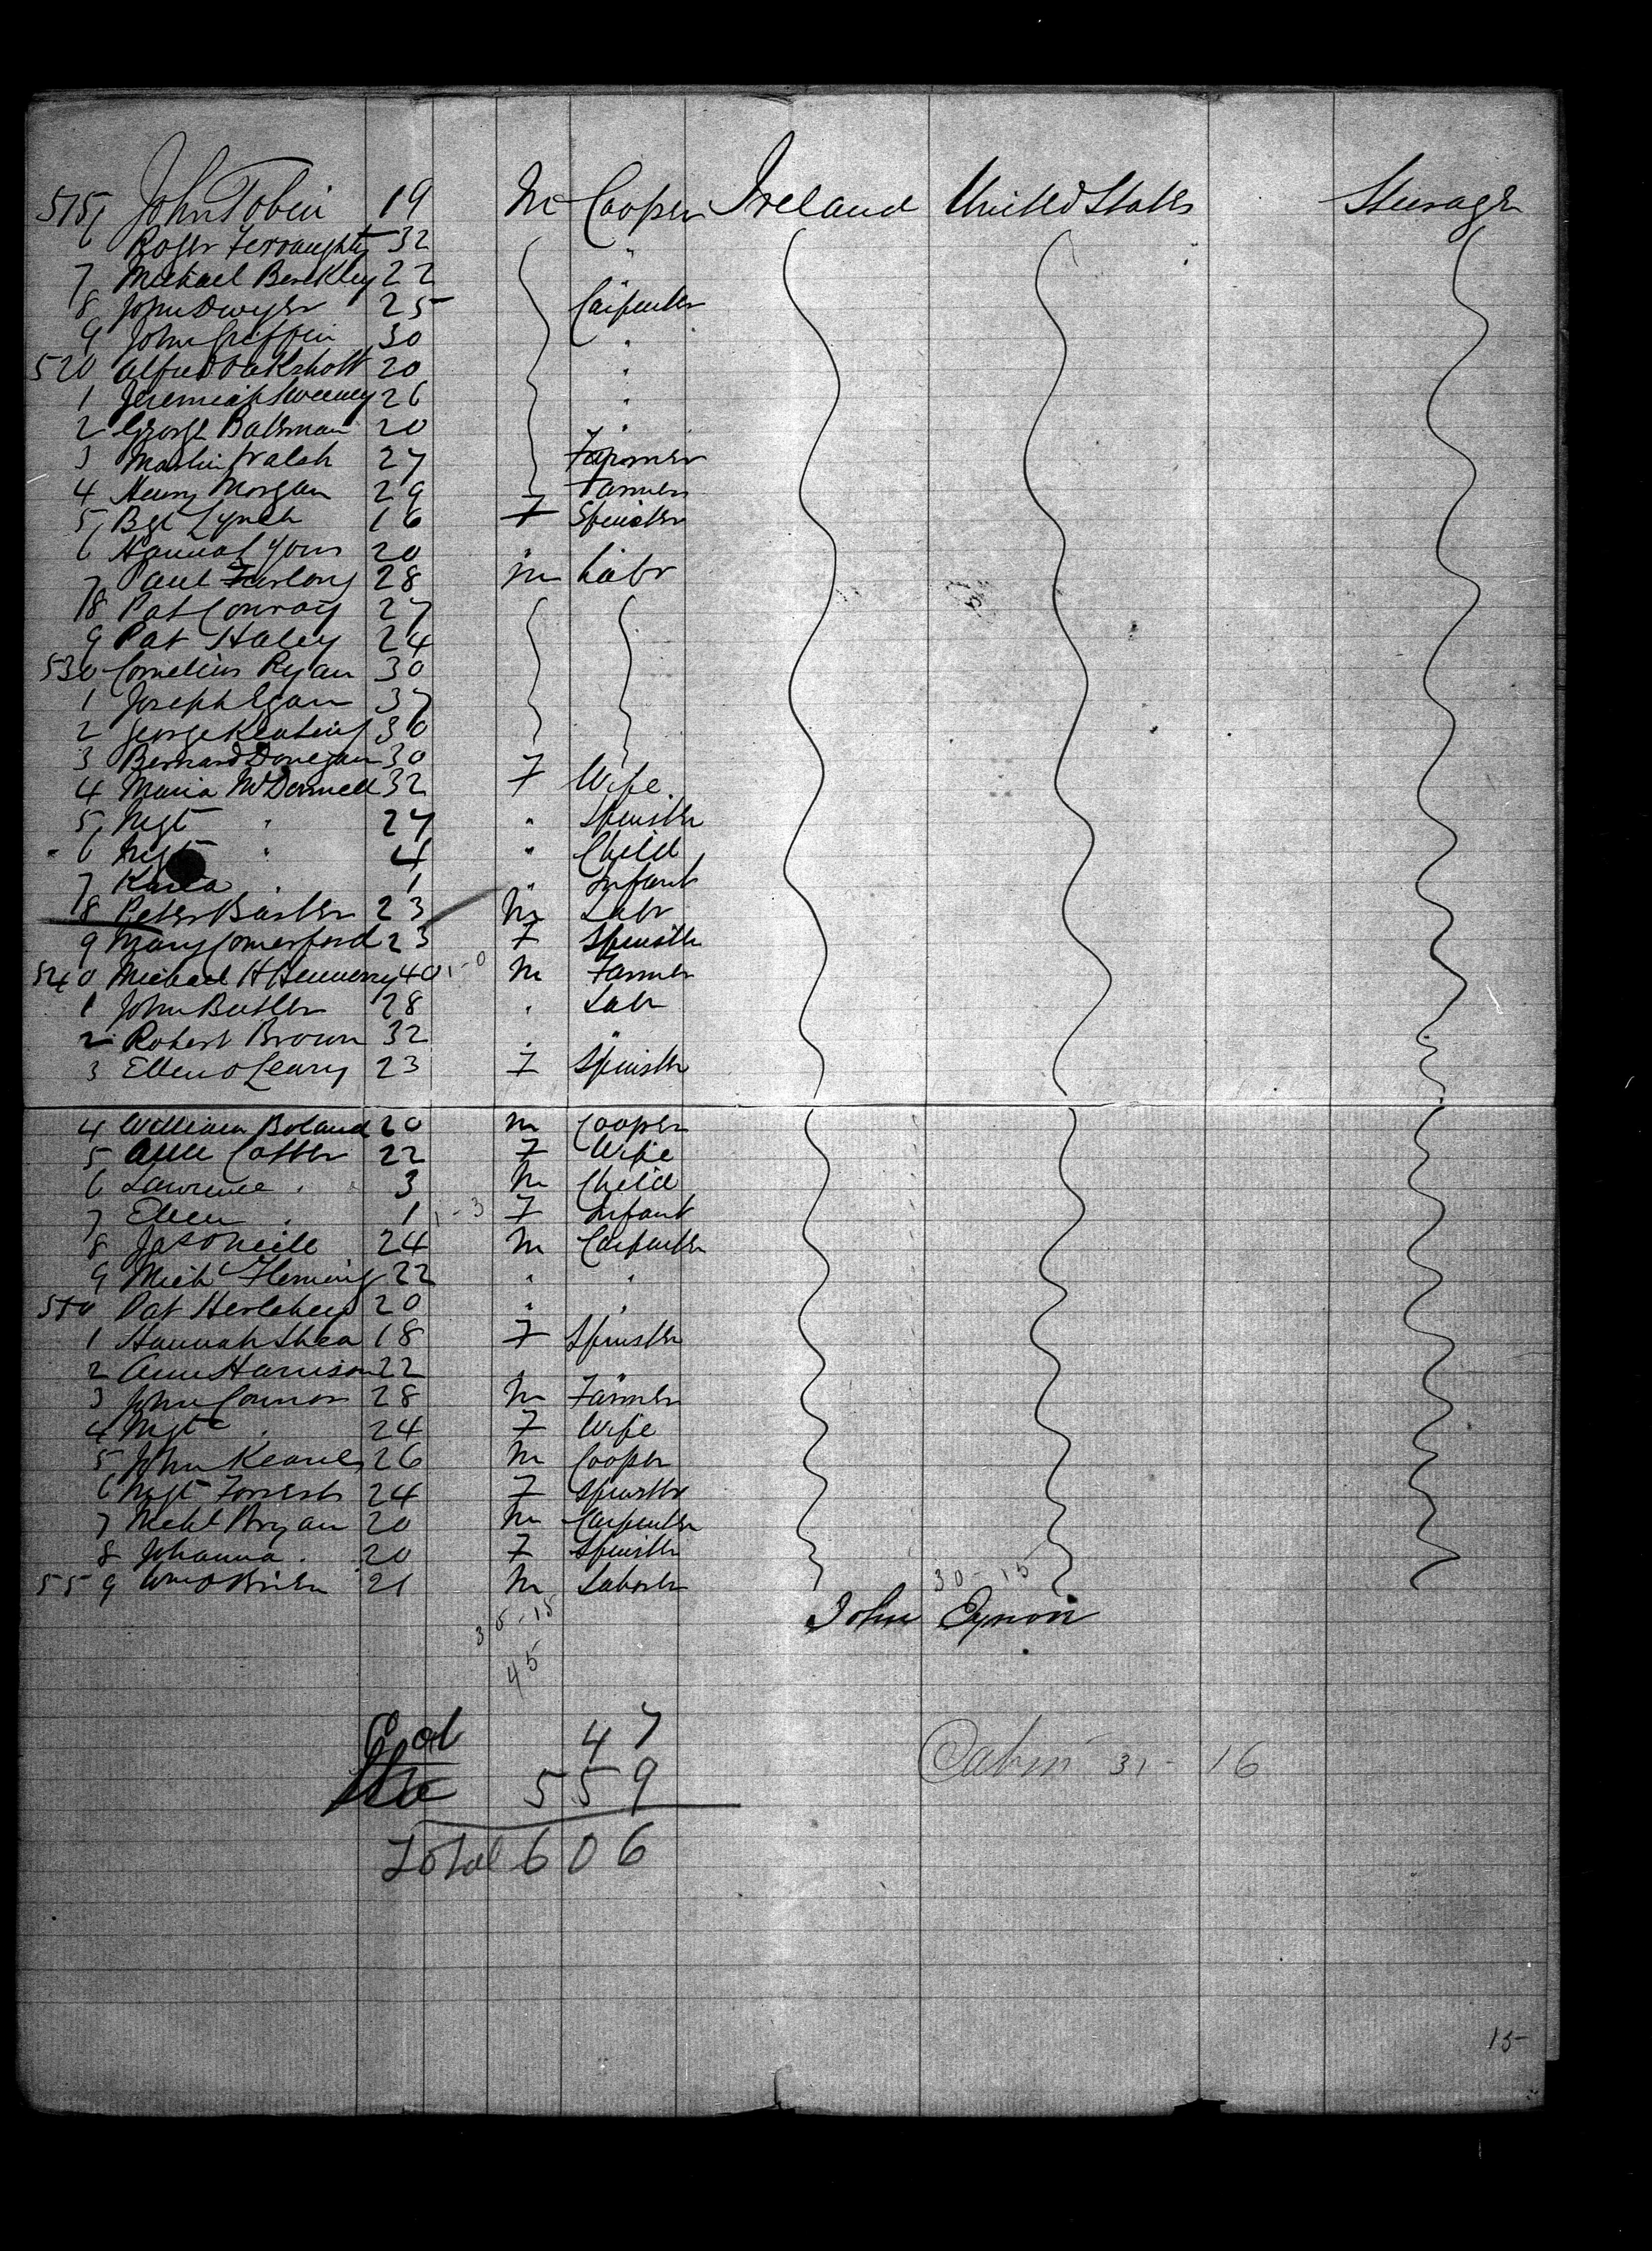 515 John Tobin 19 M Cooper Ireland United States Steerage
6 Roger Ferraughty 32 "
7 Michael Berkley 22
8 John Dwyer 25 Carpenter
9 John Griffin 30 "
520 Alfred Oakshott 20 "
1 Jeremiah Sweeney 26 "
2 George Bateman 20 "
3 Martin Walsh 27 Farmer
4 Henry Morgan 29 Farmer
5 Bgt Lynch 16 F Spinster
6 Hannah 20 " "
7 Paul Furlong 28 M Labr
8 Pat Conray 27
9 Pat Haley 24
530 Cornelius Ryan 30
1 Joseph Egan 37
2 George Keating 30
3 Bernard Donegan 30
4 Maria McDonnell 32 F Wife
5 Mgt " 27 " Spinster
6 Mgt " 4 " Child
7 " 1 " Infant
8 Peter 23 M Labr
9 Mary Comerford 23 F Spinster
540 Michael H 40 M Farmer
1 John Butler 28 " Labr
2 Robert Brown 32 " "
3 Ellen O Leary 23 F Spinster
4 William Boland 20 M Cooper
5 Cotter 22 F Wife
6 Lawrence " 3 M Child
7 Ellen " 1 1-3 F Infant
8 Jas O Neill 24 M Carpenter
9 Mich Fleming 22 " "
550 Pat Herlihey 20 " "
1 Hannah Shea 18 F Spinster
2 Ann Harrison 22 " "
3 John Connor 28 M Farmer
4 Mgt " 24 F Wife
5 John 26 M Cooper
6 Mgt Forrest 24 F Spinster
7 Michl Bryan 20 M Carpenter
8 Johanna " 20 F Spinster
559 Wm O Brien 21 M Laborer
30-15
John Eynon
30-15
45
47
Cabin 31-16
559
Total 606
15